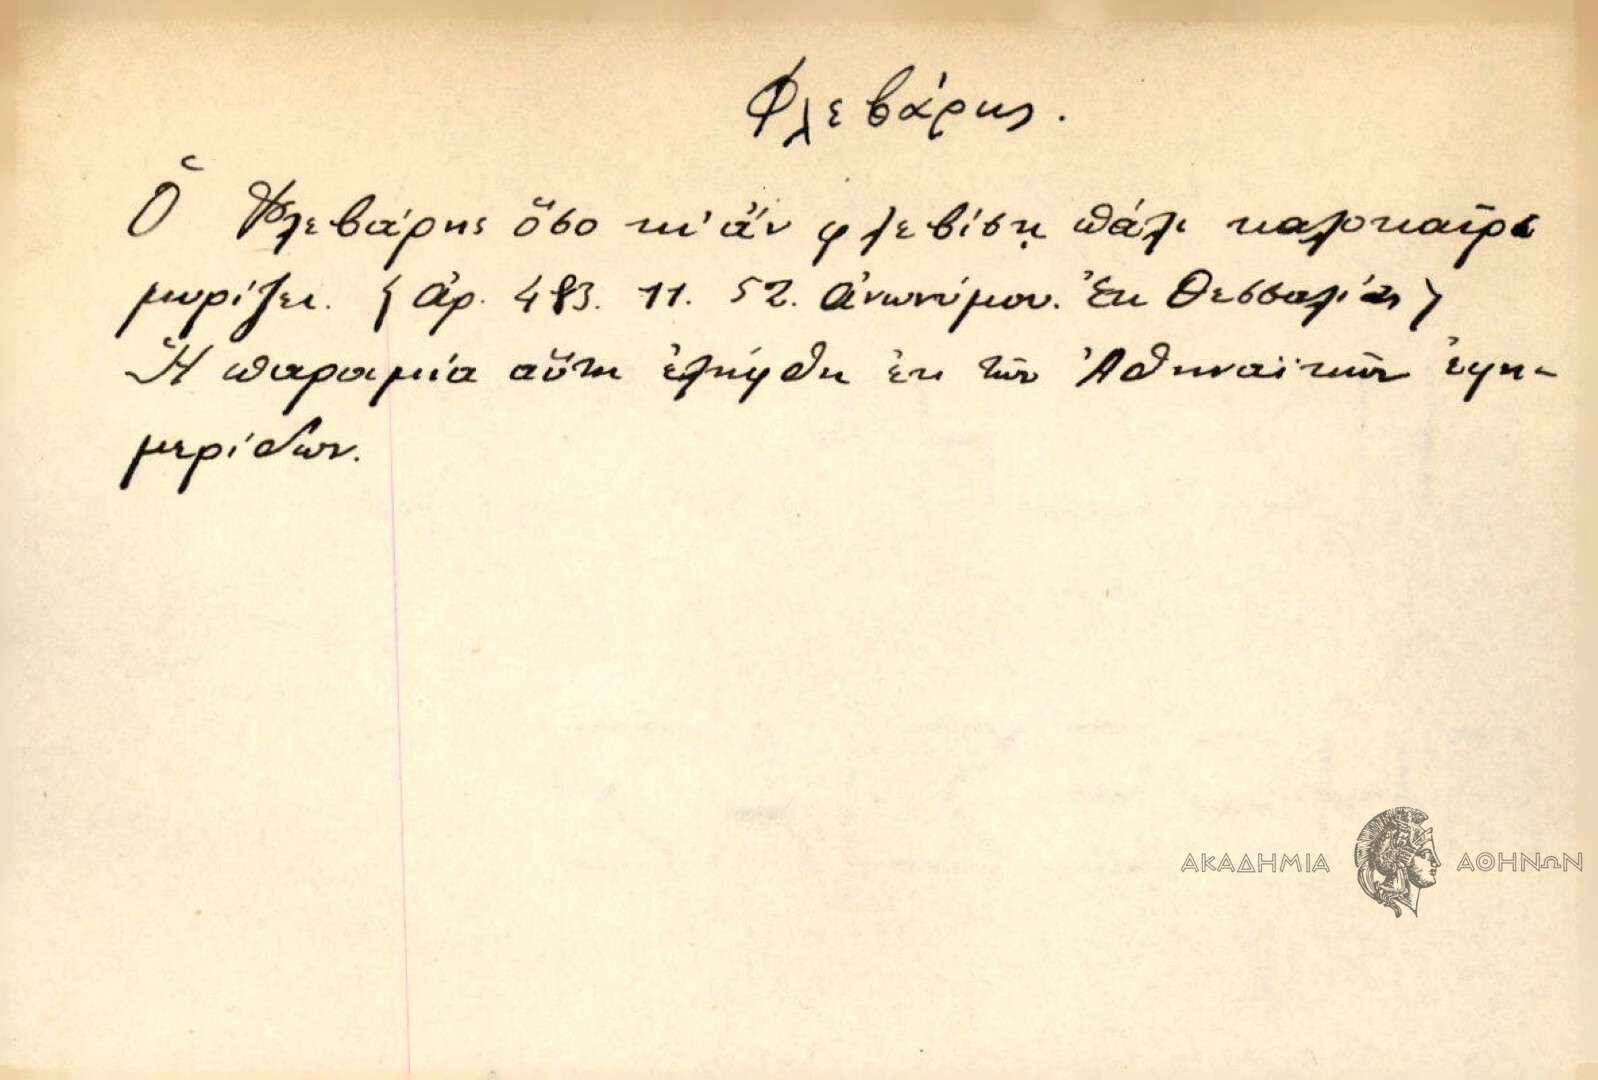 Φλεβάρης.
Ὁ Φλεβάρης ὅσο κι' ἄν φλεβίσῃ πάλι καλοκαῖρι
μυρίζει. (Ἀρ. 483. 11. 52. Ἀνωνύμου. Ἐκ Θεσσαλίας)
Ἡ παροιμία αὕτη ἐλήφθη ἐκ τῶν Ἀθηναϊκῶν ἐφη-
μερίδων.
ΑΚΑΔΗΜΙΑ ΑΘΗΝΩΝ